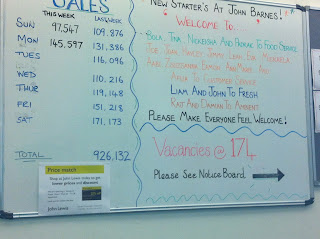 SALES
THIS WEEK LAST WEEK
SUN 97.547 109.876
MON 145.597 131.386
TUES 116.096
WED 110.216
THUR 119.148
FRI 151.218
SAT 171.173
TOTAL 926,132
Price match
lower prices and discounts
John Lewis
NEW STARTER'S AT JOHN BARNES!
WELCOME TO...
TINA, AND TO FOOD SERVICE
AND
TO CUSTOMER SERVICE
LIAM AND JOHN TO FRESH
KAT AND DAMIAN TO AMBIENT
PLEASE MAKE EVERYONE FEEL WELCOME!
Vacancies @ 174
PLEASE SEE NOTICE BOARD